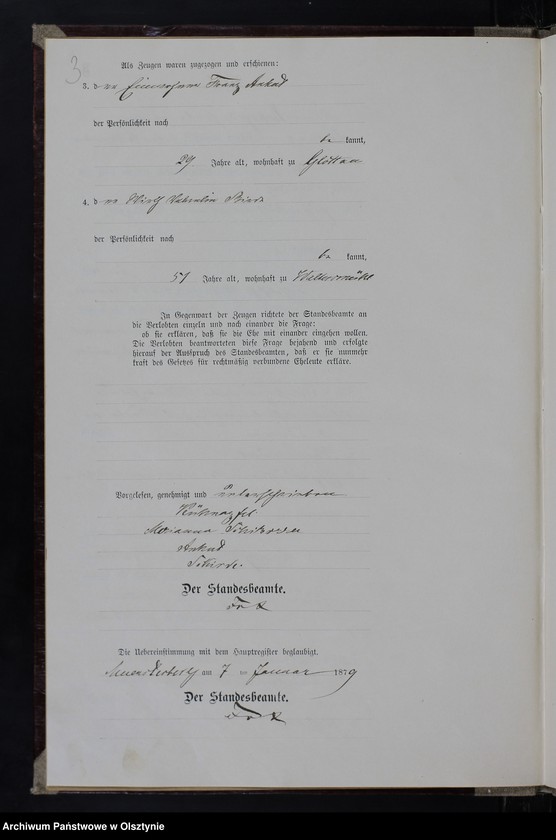 3
Als Zeugen waren zugezogen und erschienen:
3. der Einwohner Franz Ankud
der Persönlichkeit nach
be kannt,
29 Jahre alt, wohnhaft zu Glottau
4. der Wirth Valentin
der Persönlichkeit nach
be kannt,
51 Jahre alt, wohnhaft zu
In Gegenwart der Zeugen richtete der Standesbeamte an
die Verlobten einzeln und nach einander die Frage:
ob sie erklären, daß sie die Ehe mit einander eingehen wollen.
Die Verlobten beantworteten diese Frage bejahend und erfolgte
hierauf der Ausspruch des Standesbeamten, daß er sie nunmehr
kraft des Gesetzes für rechtmäßig verbundene Eheleute erkläre.
Vorgelesen, genehmigt und unterschrieben
Marianna
Ankud
Der Standesbeamte.
Die Uebereinstimmung mit dem Hauptregister beglaubigt.
am 7 ten Januar 1879
Der Standesbeamte.
Archiwum Państwowe w Olsztynie